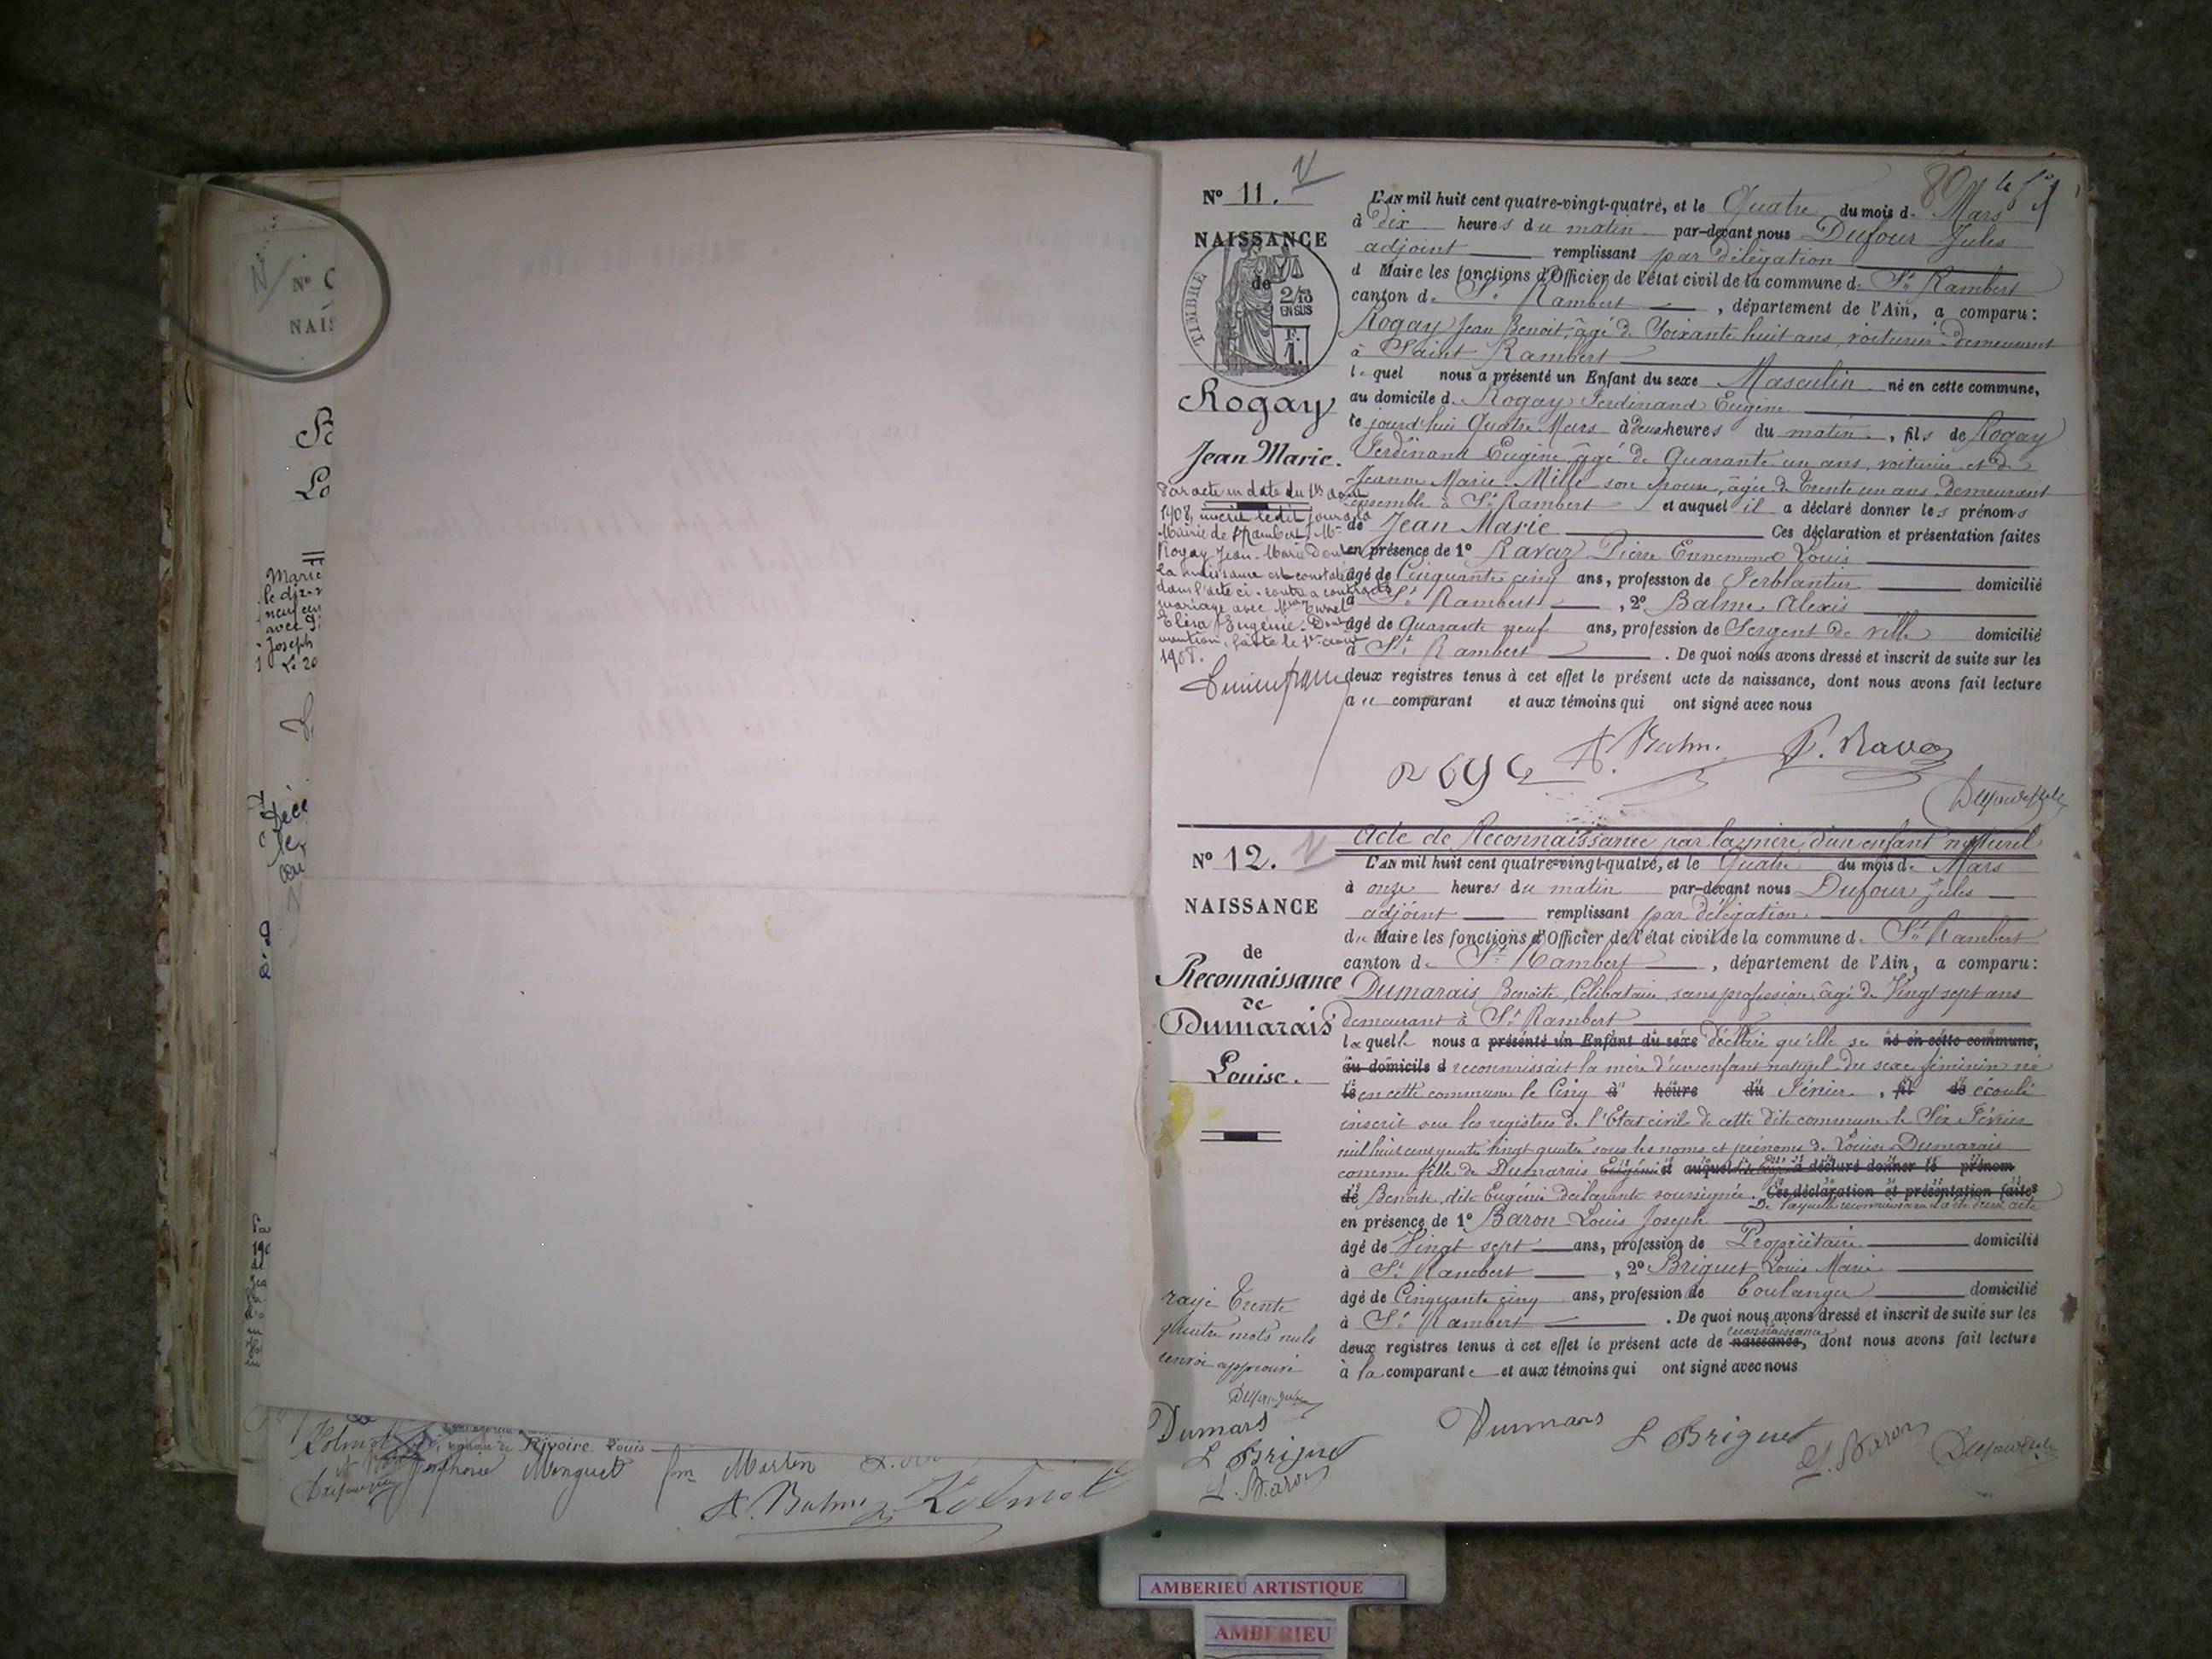 N° C
NAIS
N° 11.
NAISSANCE
de
TIMBRE
2/10
EN SUS
F.
1.
Rogay
Jean Marie.
Par acte en date du 1er août
1908, inscrit le dit jour à la
Mairie de St Rambert, Mr
Rogay Jean-Marie dont
la naissance est constatée
dans l'acte ci-contre a contracté
mariage avec
Elisa Eugénie. Dont
mention, faite le 1er août
1908.
L'AN mil huit cent quatre-vingt-quatre, et le Quatre du mois de Mars
à dix heures du matin par-devant nous Dufour Jules
adjoint remplissant par délégation
d Maire les fonctions d'Officier de l'état civil de la commune de St Rambert
canton de St Rambert , département de l'Ain, a comparu:
Rogay Jean Benoit, âgé de Soixante huit ans, voiturier demeurant
à Saint Rambert
lequel nous a présenté un Enfant du sexe Masculin né en cette commune,
au domicile d. Rogay Ferdinand Eugène
ce jourd'hui Quatre Mars à deux heures du matin, fils de Rogay
Ferdinand Eugène, âgé de Quarante un ans, voiturier et de
Jeanne Marie Mille son épouse, âgée de Trente un ans, demeurant
ensemble à St Rambert et auquel il a déclaré donner les prénoms
de Jean Marie Ces déclaration et présentation faites
en présence de 1° Ravaz Pierre Ennemond Louis
âgé de Cinquante cinq ans, profession de Ferblantier domicilié
à St Rambert , 2° Balme Alexis
âgé de Quarante neuf ans, profession de Sergent de ville domicilié
à St Rambert . De quoi nous avons dressé et inscrit de suite sur les
deux registres tenus à cet effet le présent acte de naissance, dont nous avons fait lecture
au comparant et aux témoins qui ont signé avec nous
A. Balme P. Ravaz
Acte de Reconnaissance par la mère d'un enfant naturel
N° 12.
NAISSANCE
de
Reconnaissance
de
Dumarais
Louise.
L'AN mil huit cent quatre-vingt-quatre, et le Quatre du mois de Mars
à onze heures du matin par-devant nous Dufour Jules
adjoint remplissant par délégation
du Maire les fonctions d'Officier de l'état civil de la commune de St Rambert
canton de St Rambert , département de l'Ain, a comparu:
Dumarais Benoite, Célibataire, sans profession, âgé de Vingt sept ans
demeurant à St Rambert
laquelle nous a présenté un Enfant du sexe déclaré qu'elle se né en cette commune,
au domicile d reconnaissait la mère d'un enfant naturel du sexe féminin né
le en cette commune le Cinq à heure du Février , fil de écoulé
inscrit sur les registres de l'Etat civil de cette dite commune le Six Février
mil huit cent quatre vingt quatre sous les noms et prénoms de Louise Dumarais
comme fille de Dumarais Eugénie et auquel a déclaré donner le prénom
de Benoite dite Eugénie déclarante soussignée. Ces déclaration et présentation faites
De laquelle reconnaissance acte
en présence de 1° Baron Louis Joseph
âgé de Vingt sept ans, profession de Propriétaire domicilié
à St Rambert , 2° Briguet Louis Marie
âgé de Cinquante cinq ans, profession de boulanger domicilié
à St Rambert . De quoi nous avons dressé et inscrit de suite sur les
reconnaissance
deux registres tenus à cet effet le présent acte de naissance, dont nous avons fait lecture
à la comparante et aux témoins qui ont signé avec nous
rayé Trente
quatre mots nuls
renvoi approuvé
Dumars
L Briguet
L. Baron
Dumars L Briguet L. Baron
Rivoire Louis
Minguet fm Martin
A. Balme Kolmol
AMBERIEU ARTISTIQUE
AMBERIEU